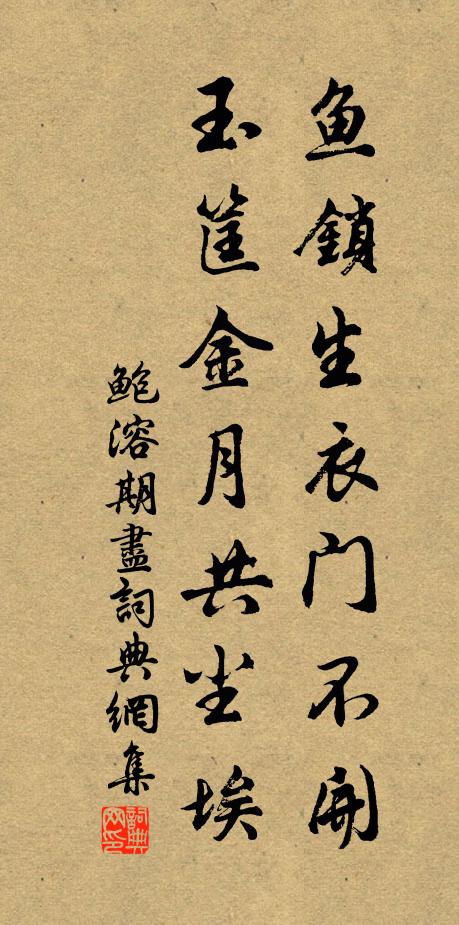 鱼鎖生衣门不開
玉筐金月共尘埃
鲍溶期盡詞典網集
詞典网印